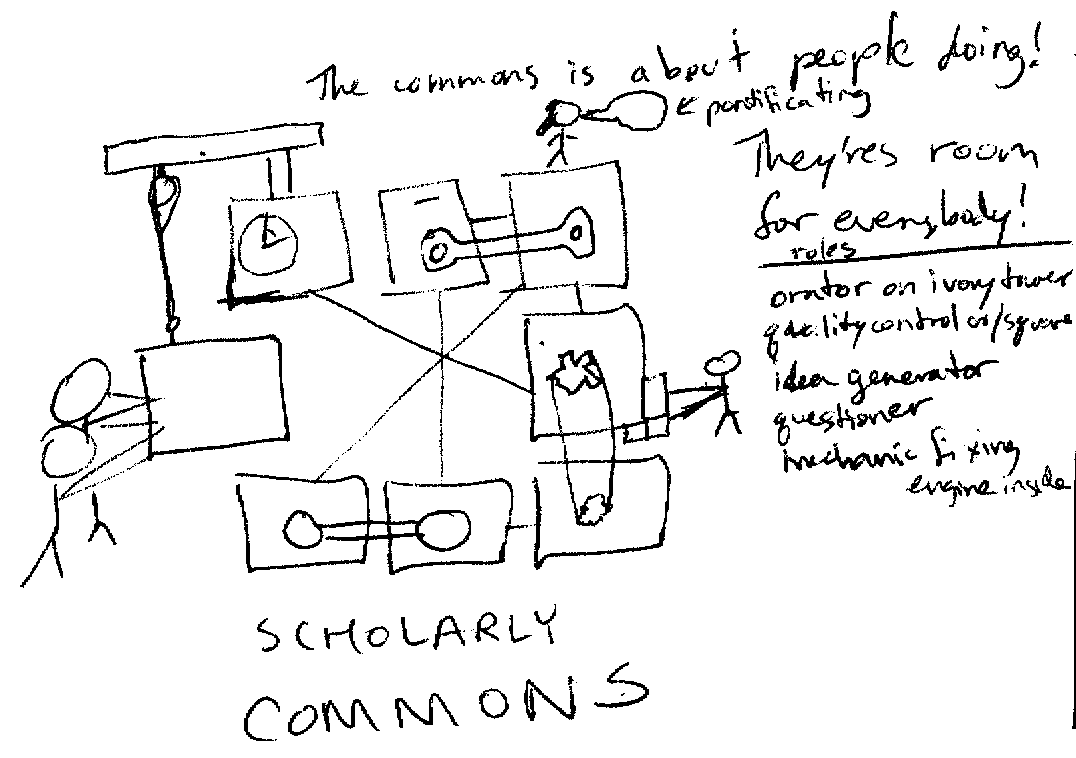 The commons is about people doing!
← pontificating
They'res room
for everybody!
roles
orator on ivory tower
quality control w/square
idea generator
questioner
mechanic fixing
engine inside
SCHOLARLY
COMMONS